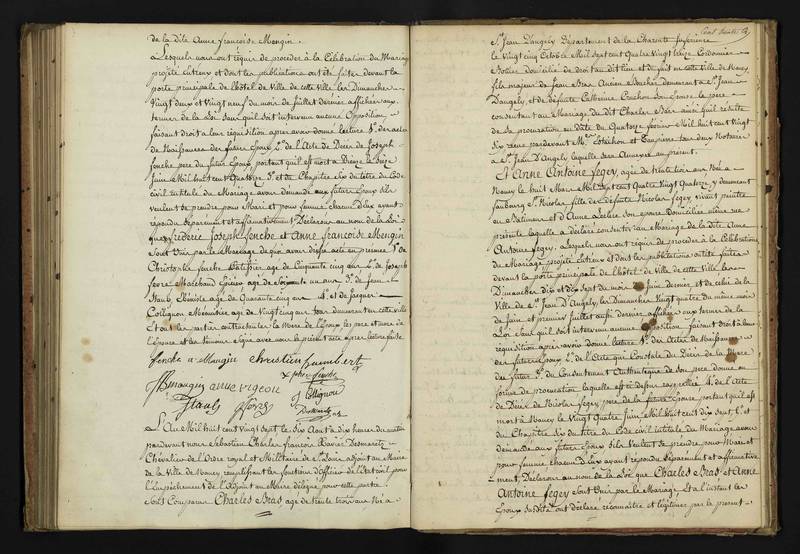 de la dite Anne françoise Mengin.
Lesquels nous ont requis de procéder à la Célébration du Mariage
projeté entr'eux et dont les publications ont été faites devant la
porte principale de l'hôtel de Ville de cette ville les Dimanches
Vingt deux et Vingt neuf du mois de Juillet dernier affichées aux
termes de la Loi sans qu'il soit intervenu aucune Opposition,
faisant droit à leur réquisition après avoir donné lecture 1.° des actes
de Naissances des futurs Epoux 2.° de l'Acte de Décès de Joseph
Jenche père du futur Epoux portant qu'il est mort à Dieuze le seize
Juin Mil huit cent Quatorze 3.° et du Chapitre Six du titre du Code
civil intitulé du Mariage avons demandé aux futurs Epoux s'ils
veulent se prendre pour Mari et pour femme, chacun d'eux ayant
répondu séparément et affirmativement Déclarons au nom de la Loi
que Frédéric Joseph Jenche et Anne françoise Mengin
sont Unis par le Mariage de quoi avons dressé acte en présence 1.° de
Christophe Jenche Pâtissier âgé de Cinquante cinq ans 2.° de Joseph
fevre Marchand Epicier âgé de Soixante un ans 3.° de Jean
Staub Ebéniste âgé de Quarante cinq ans 4.° et de Jacques
Collignon Menuisier âgé de Vingt cinq ans tous demeurant en cette ville
Et ont les parties contractantes la Mère de l'Epoux les père et mère de
l'épouse et les témoins signé avec nous le présent acte après lecture faite.
Jenche a Mangin chrestien humbert
JB mangin anne vigeon
Staub fevre Collignon
Desmaretz
L'An Mil huit cent Vingt sept le Six Août à dix heures du matin
pardevant nous Sébastien Charles françois Xavier Desmaretz
Chevalier de l'Ordre royal et Militaire de S.t Louis adjoint au Maire
de la Ville de Nancy remplissant les fonctions d'officier de l'Etat civil pour
l'Empêchement de l'Adjoint au Maire délégué pour cette partie.
Sont Comparus Charles Bras, âgé de trente trois ans Né à
S.t Jean D'angely Département de la Charente Inférieure
le Vingt cinq Octobre Mil Sept cent Quatre Vingt treize Cordonnier
Bottier domicilié de droit au dit lieu et de fait en cette Ville de Nancy,
fils majeur de Jean Bras Ancien Boucher demeurant à S.t Jean
D'angely, et de défunte Catherine
consentant au Mariage du dit Charles Bras ainsi qu'il résulte
de sa procuration en Date du Quatorze février Mil huit cent Vingt
Six reçue pardevant M.es et tous deux Notaires
à S.t Jean D'Angely laquelle sera Annexée au présent.
Et Anne Antoine Fegey, âgée de trente trois ans Née à
Nancy le huit Mars Mil Sept cent Quatre Vingt Quatorze y demeurant
faubourg S.t Nicolas fille de défunt Nicolas fegey vivant peintre
en Bâtiment et de Anne Leclere son épouse domiciliée même rue
présente laquelle a déclaré consentir au Mariage de la dite Anne
Antoine Fegey, Lesquels nous ont requis de procéder à la Célébration
du Mariage projeté entr'eux et dont les publications ont été faites
devant la porte principale de l'hôtel de Ville de cette Ville les
Dimanches dix et dix sept du mois de Juin dernier et de celui de la
Ville de S.t Jean D'Angely, les Dimanches Vingt quatre du même mois
de Juin et premier Juillet aussi dernier affichées aux termes de la
Loi Sans qu'il soit intervenu aucune Opposition faisant droit à leur
réquisition après avoir donné lecture 1.° des Actes de Naissances
des futurs Epoux 2.° de l'Acte qui Constate du Décès de la Mère
du futur 3.° du Consentement Authentique de son père donné en
forme de procuration laquelle est ci dessus rappellée 4.° de l'Acte
de Décès de Nicolas Fegey père de la future Epouse portant qu'il est
mort à Nancy le Vingt Quatre Juin Mil huit cent dix sept 5.° et
du Chapitre Six du titre du Code civil intitulé du Mariage avons
demandé aux futurs Epoux s'ils Veulent se prendre pour Mari et
pour femme chacun d'Eux ayant répondu Séparément et affirmative
ment, Déclarons au nom de la Loi que Charles Bras et Anne
Antoine Fegey sont Unis par le Mariage, Et à l'instant les
Epoux susdits ont déclaré reconnaître et légitimer par le présent